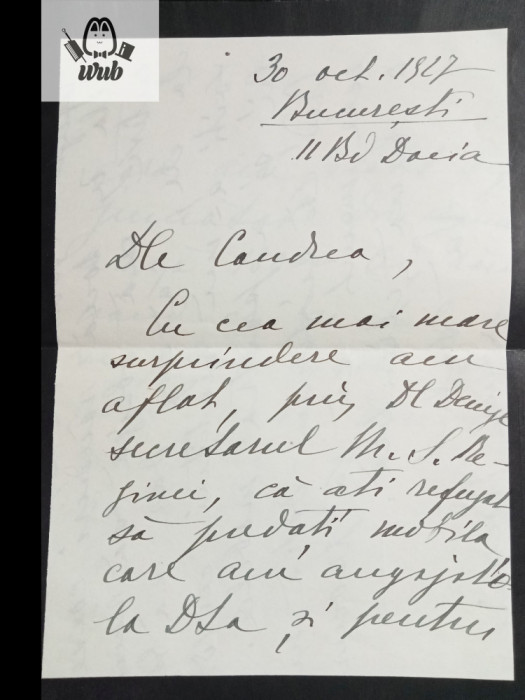 wub
30 oct. 1927
București
11 Bd Dacia
Dle Candrea,
Cu cea mai mare
surprindere am
aflat, prin Dl
secretarul M. S. Re-
ginei, că ați refuzat
să predați mobila
care am angajat'o
la DSa și pentru